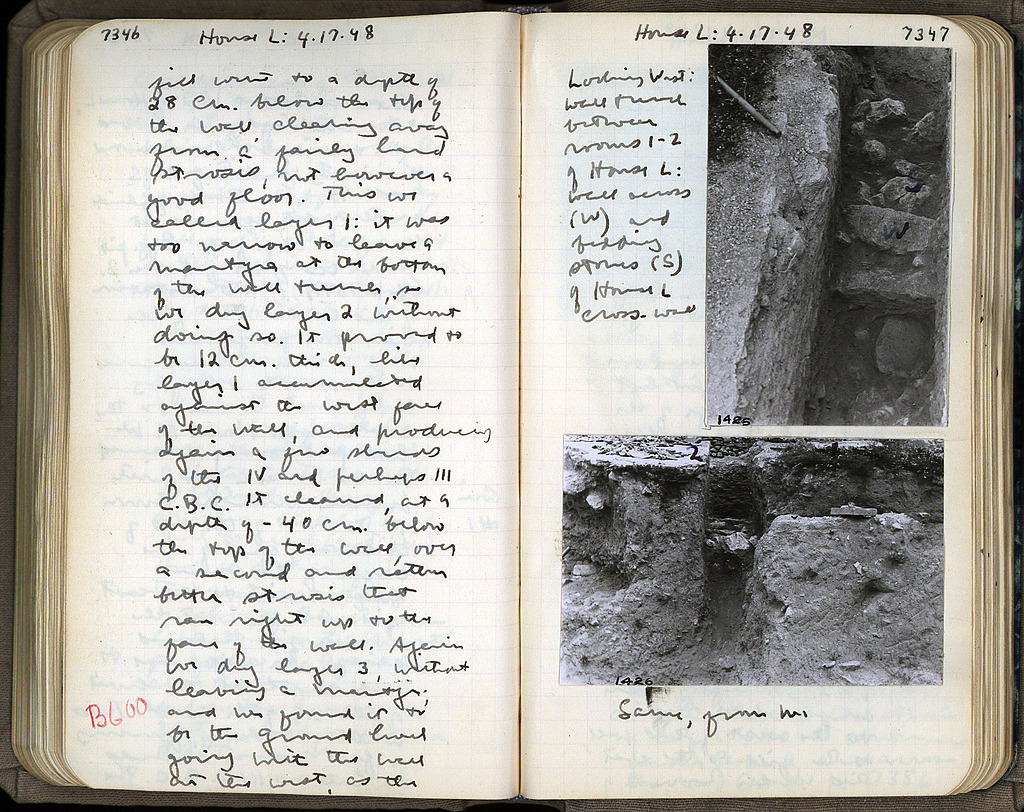 7346
House L: 4.17.48
fill went to a depth of
28 cm. below the top of
the wall clearing away
from a fairly hard
strosis, not however a
good floor. This we
called layer 1: it was
too narrow to leave a
martyra at the bottom
of the wall trench, so
we dug layer 2 without
doing so. It proved to
be 12 cm. thick, like
layer 1 accumulated
against the west face
of the wall, and producing
again a few sherds
of the IV and perhaps III
C.B.C. It cleared, at a
depth of -40 cm. below
the top of the wall, over
a second and rather
better strosis that
ran right up to the
face of the wall. Again
we dug layer 3, without
leaving a martyr,
and we found it to
be the ground level
going with the wall
at the west, as the
B600
House L: 4.17.48
7347
Looking West:
wall trench
between
rooms 1-2
of House L:
wall across
(W) and
bedding
stones (S)
of House L
cross-wall
W
1425
2
1
1426
Same, from